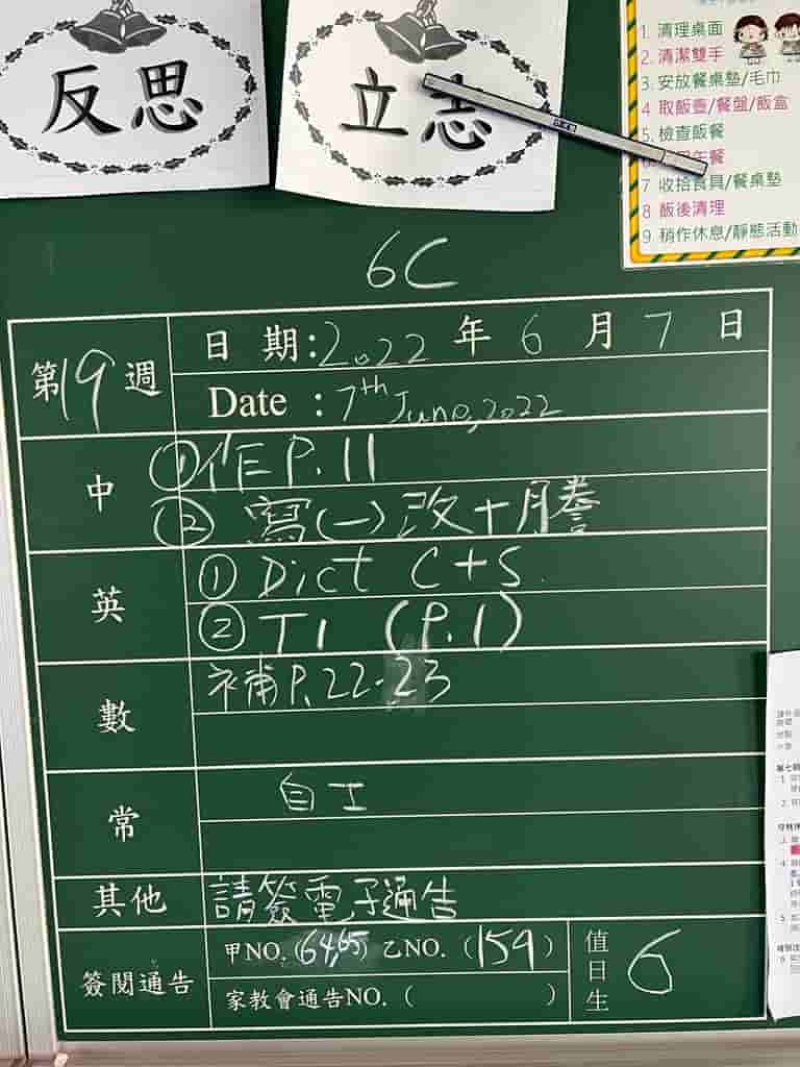 反思
立志
1. 清理桌面
2. 清潔雙手
3. 安放餐桌墊/毛巾
4 取飯壼/餐盤/飯盒
5. 檢查飯餐
午餐
7 收拾食具/餐桌墊
8 飯後清理
9 稍作休息/靜態活動
6C
第19週
日 期:2022 年 6 月 7 日
Date : 7th June, 2022
中
①作P.11
② 寫(一)改+謄
英
① Dict C+S
② T1 (P.1)
數
補P.22-23
常
自工
其他
請簽電子通告
簽閱通告
甲NO.(64,65) 乙NO.(159)
家教會通告NO.( )
值日生
6